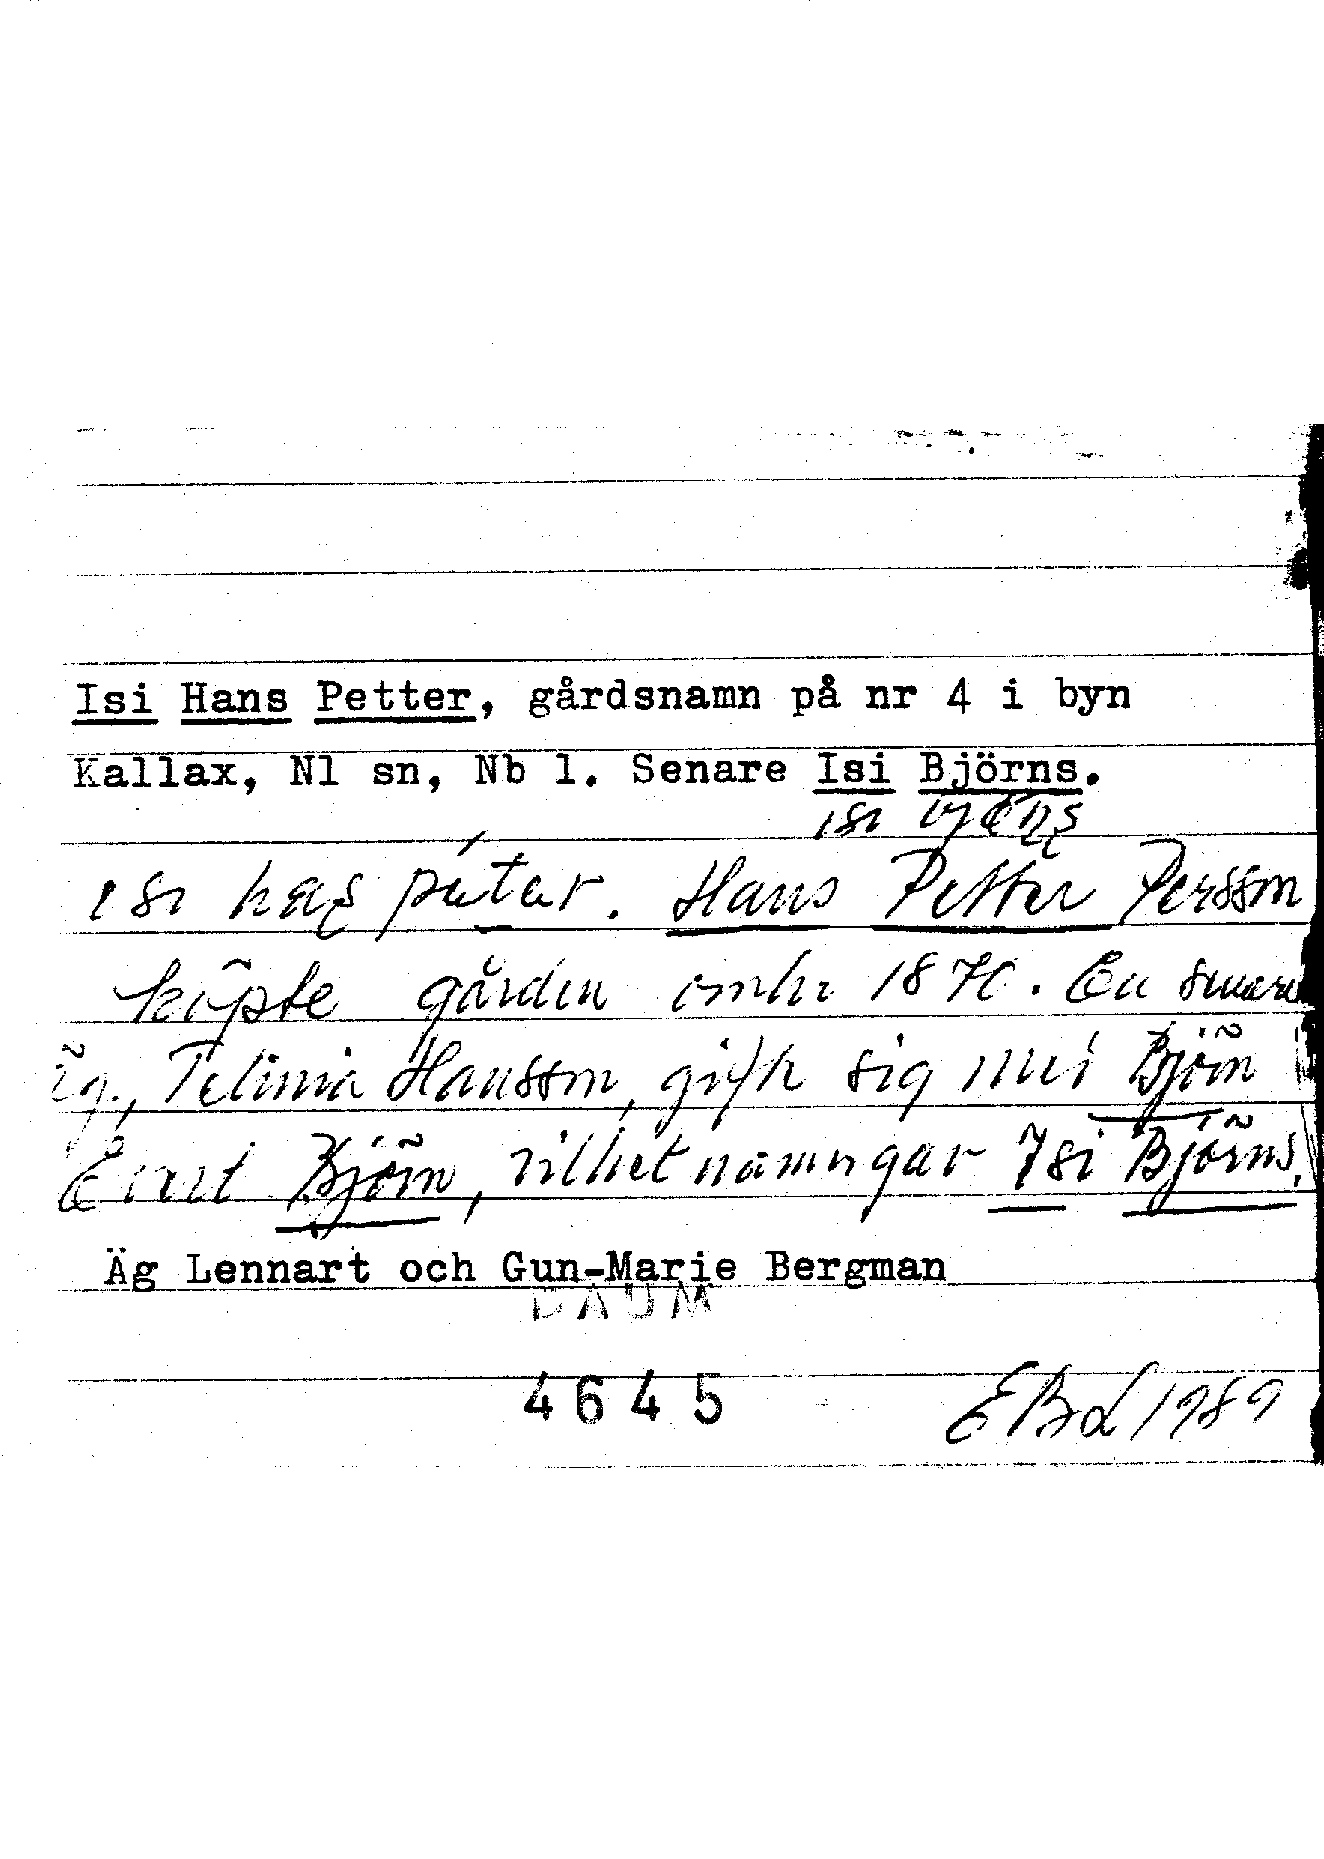 Isi Hans Petter, gårdsnamn på nr 4 i byn
Kallax, Nl sn, Nb l. Senare Isi Björns.
isi
isi petar. Hans Petter Persson
köpte gården omkr 1870. En senare
äg., Telinia Hansson, gifte sig med Björn
Evert Björn, vilket namngav Isi Björns.
Äg Lennart och Gun-Marie Bergman
DAUM
4645 EBd 1989